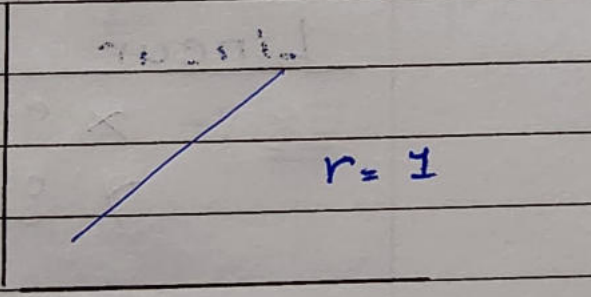 r = 1